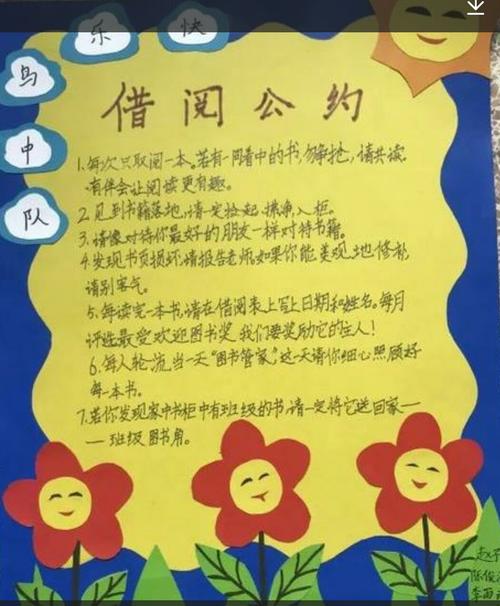 快
乐
鸟
中
队
借阅公约
1.每次只取阅一本。若有一同看中的书,勿争抢,请共读。
有伴会让阅读更有趣。
2.见到书籍落地,请一定捡起,拂净,入柜。
3.请像对待你最好的朋友一样对待书籍。
4.发现书页损坏,请报告老师。如果你能美观地修补,
请别客气。
5.每读完一本书,请在借阅表上写上日期和姓名。每月
评选最受欢迎图书奖,我们要奖励它的主人!
6.每人轮流当一天“图书管家”,这一天请你细心照顾好
每一本书。
7.若你发现家中书柜中有班级的书,请一定将它送回家—
—班级图书角。
赵
陈俊
李